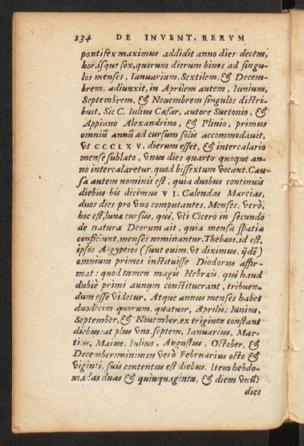 134 DE INVENT. RERVM
pontifex maximus addidit anno dies decem,
horasque sex, quorum dierum binos ad singu-
los menses, Ianuarium, Sextilem, & Decem-
brem, adiunxit, in Aprilem autem, Iunium,
Septembrem, & Nouembrem singulos distri-
buit. Sic C. Iulius Cæsar, autore Suetonio, &
Appiano Alexandrino, & Plinio, primus
omniũ annũ ad cursum solis accommodauit,
vt CCCLXV. dierum esset, & intercalario
mense sublato, vnus dies quarto quoque an-
no intercalaretur, quod bissextum vocant. Cau-
sa autem nominis est, quia duobus continuis
diebus bis dicimus VI. Calendas Martias,
duos dies pro vno computantes. Menses, verò,
hoc est, lunæ cursus, qui, vti Cicero in secundo
de natura Deorum ait, quia mensa spatia
conficiunt, menses nominantur. Thebæos, id est,
ipsos Aegyptios (sunt enim, vt diximus,
omnium primos instituisse Diodorus affir-
mat: quod tamen magis Hebræis, qui haud
dubiè primi annum constituerant, tribuen-
dum esse videtur. Atque annus menses habet
duodecim quorum, quatuor, Aprilis, Iunius,
September, & Nouember, ex triginta constant
diebus: at plus vno, septem, Ianuarius, Mar-
tius, Maius, Iulius, Augustus, October, &
December: minimus verò Februarius octo &
viginti, suis contentus est diebus. Item hebdo-
madas duas & quinquaginta, & diem vnũ:
dies